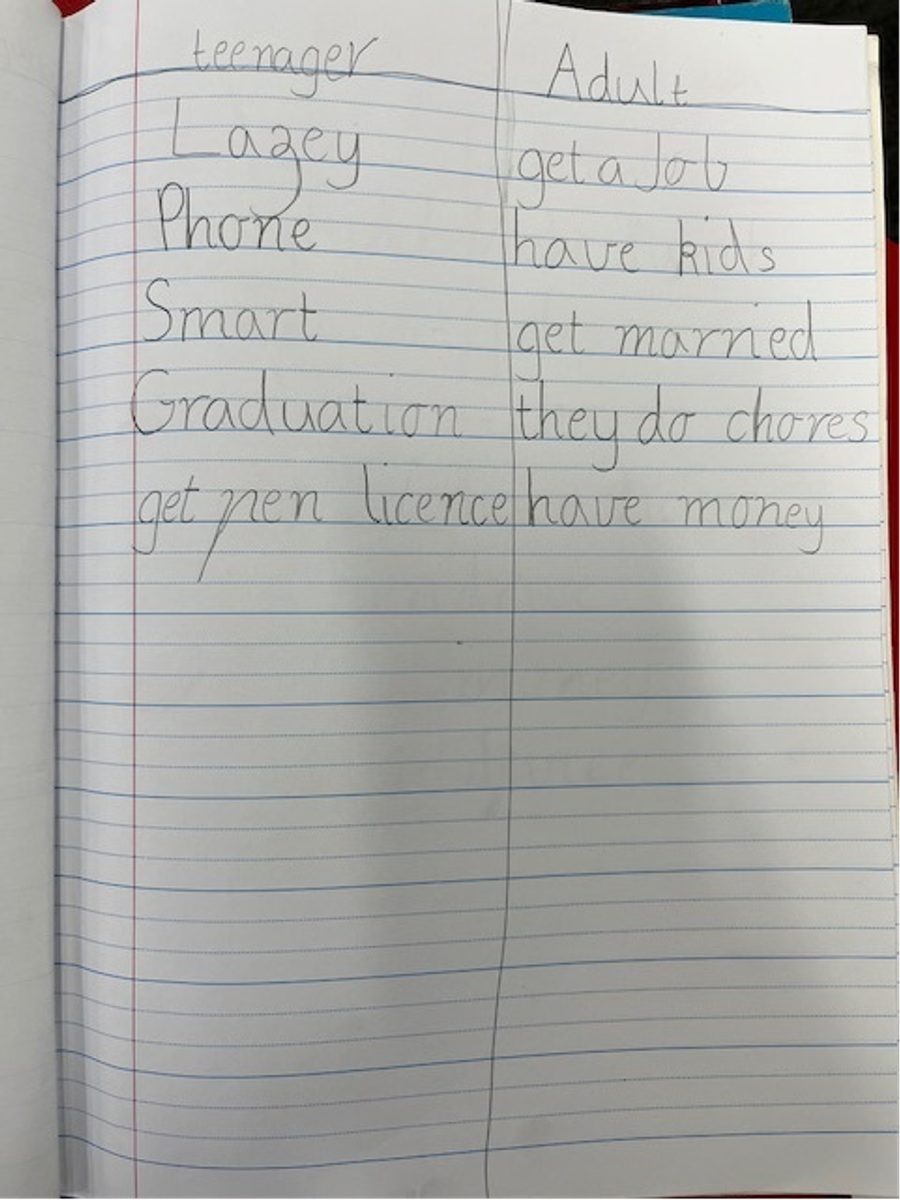 teenager Adult
Lazey get a Job
Phone have kids
Smart get married
Graduation they do chores
get pen licence have money